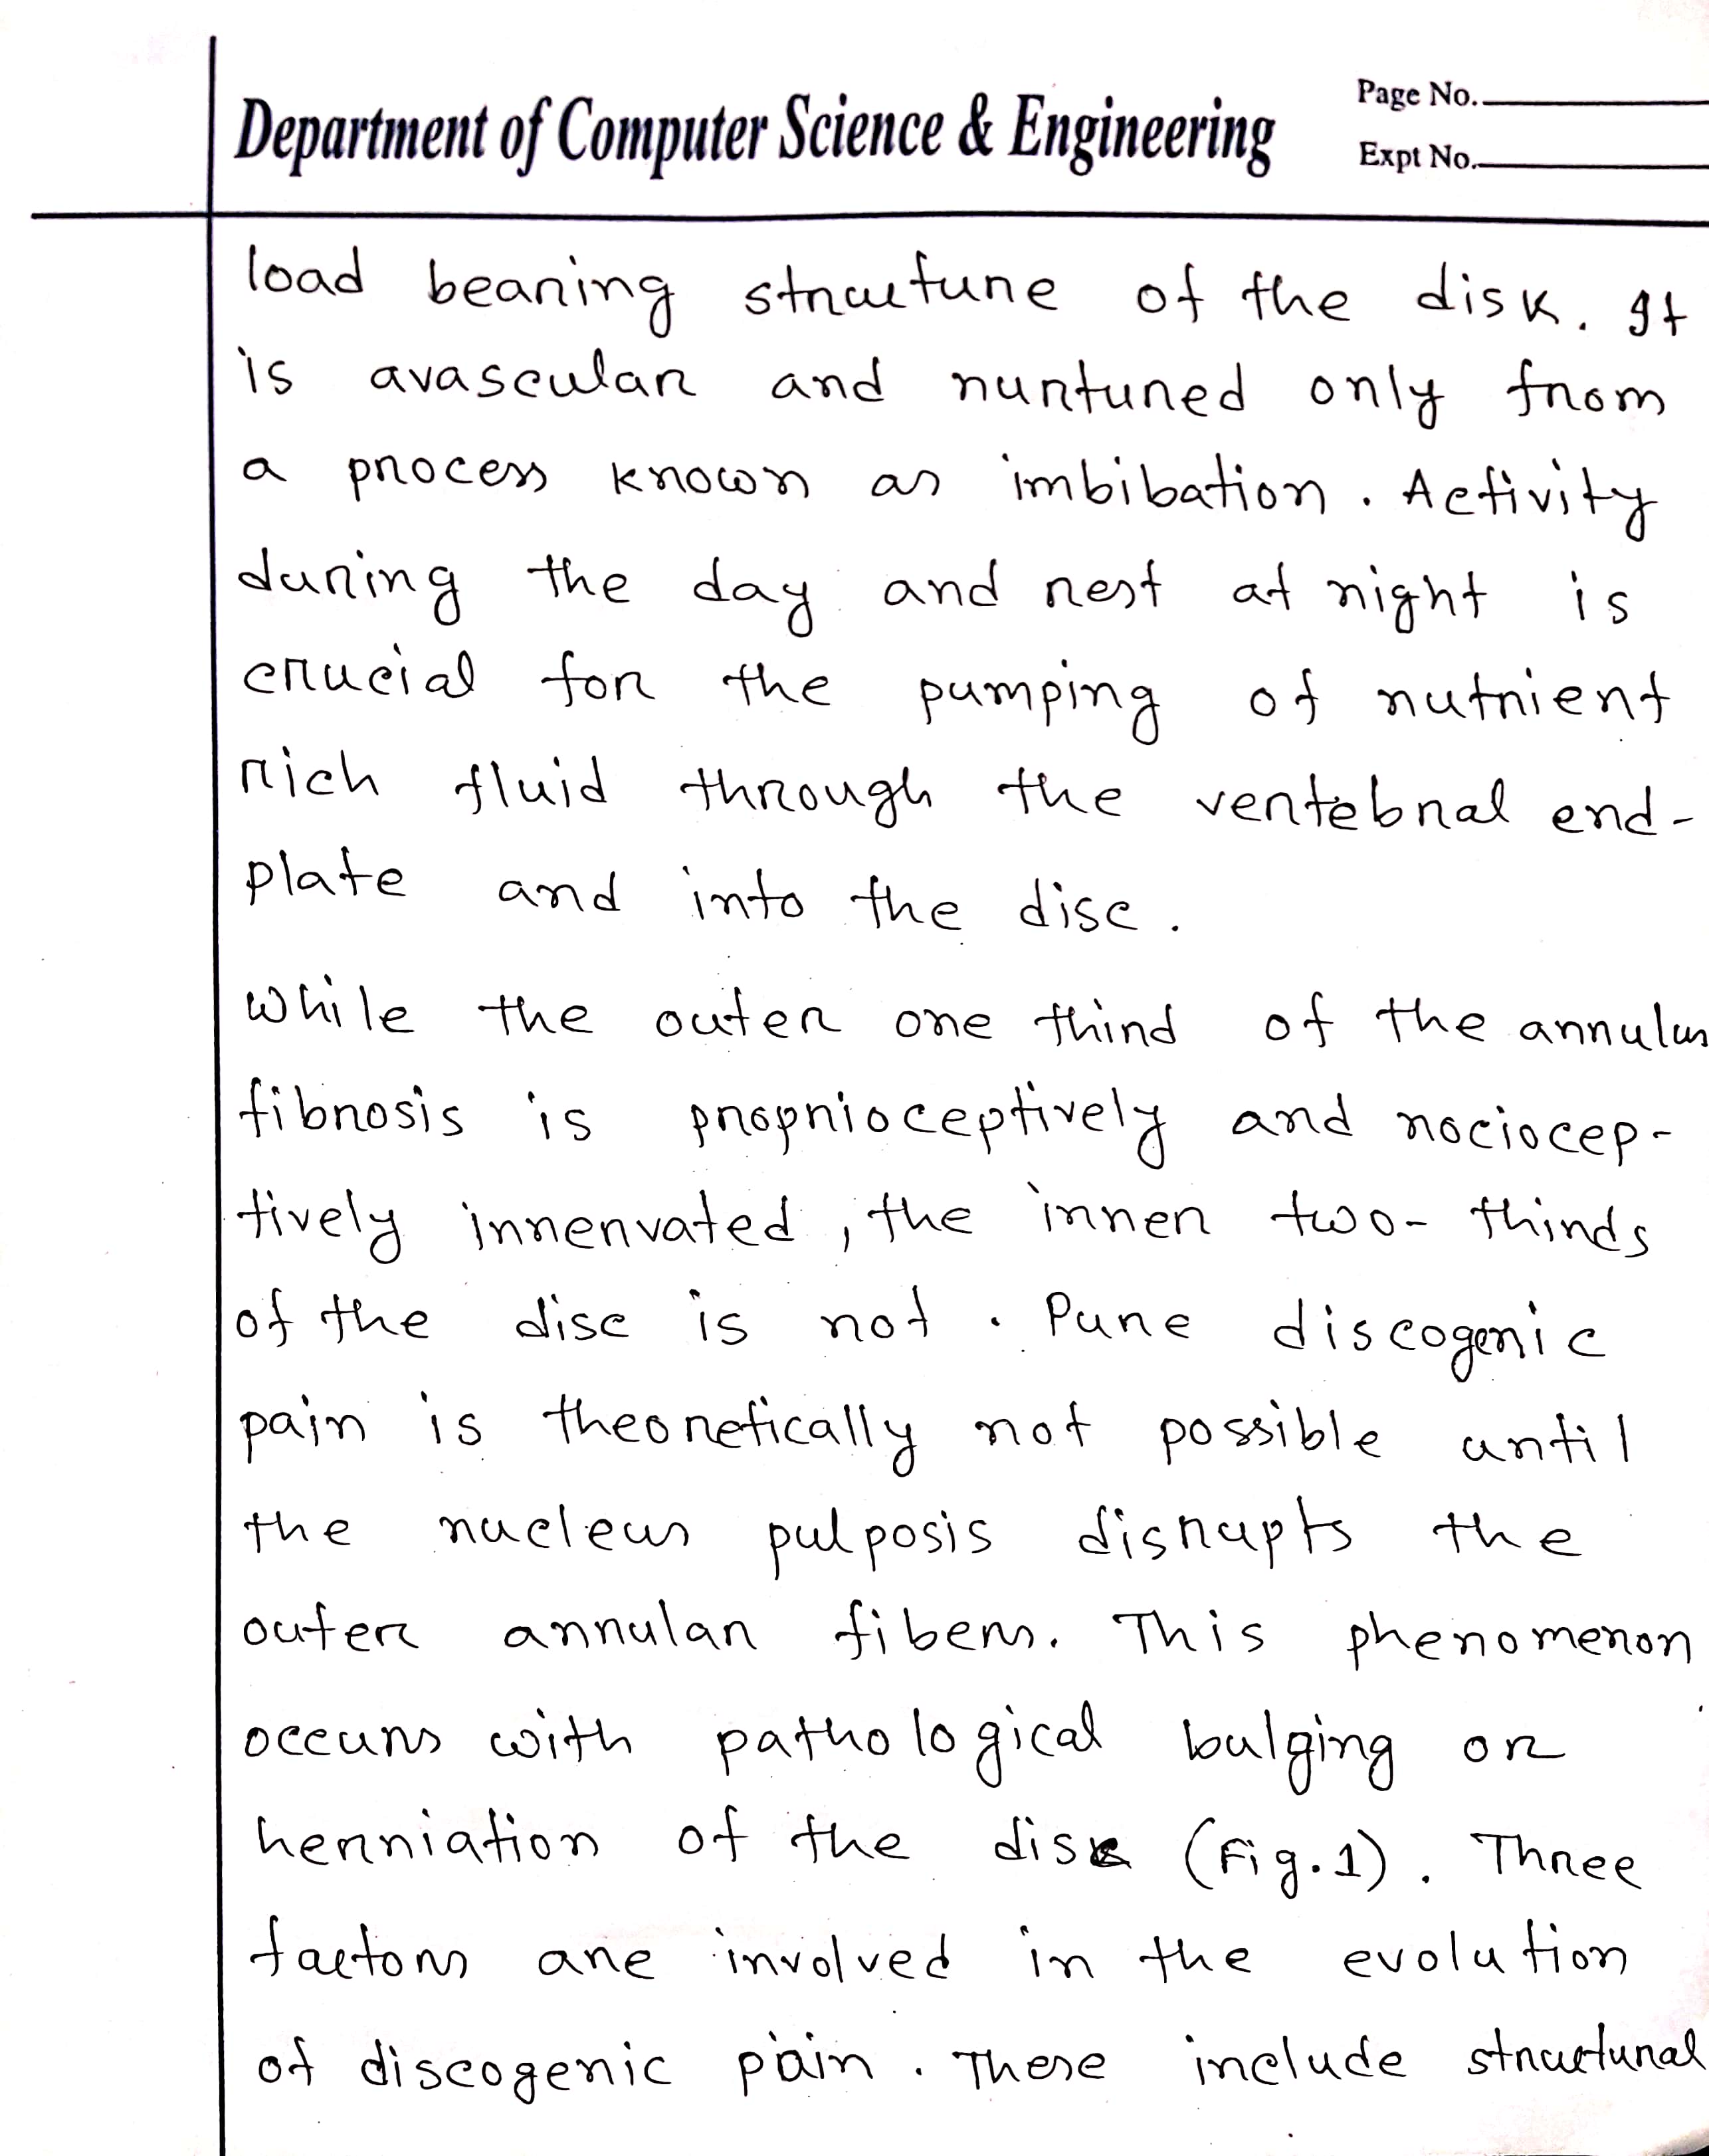 Department of Computer Science & Engineering
Page No.
Expt No.
load bearing structure of the disk. It
is avascular and nurtured only from
a process known as imbibation. Activity
during the day and rest at night is
crucial for the pumping of nutrient
rich fluid through the vertebral end-
plate and into the disc.
While the outer one third of the annulus
fibrosis is proprioceptively and nociocep-
tively innervated, the inner two-thirds
of the disc is not. Pure discogenic
pain is theoretically not possible until
the nucleus pulposis disrupts the
outer annular fibers. This phenomenon
occurs with pathological bulging or
herniation of the disk (Fig.1). Three
factors are involved in the evolution
of discogenic pain. These include structural